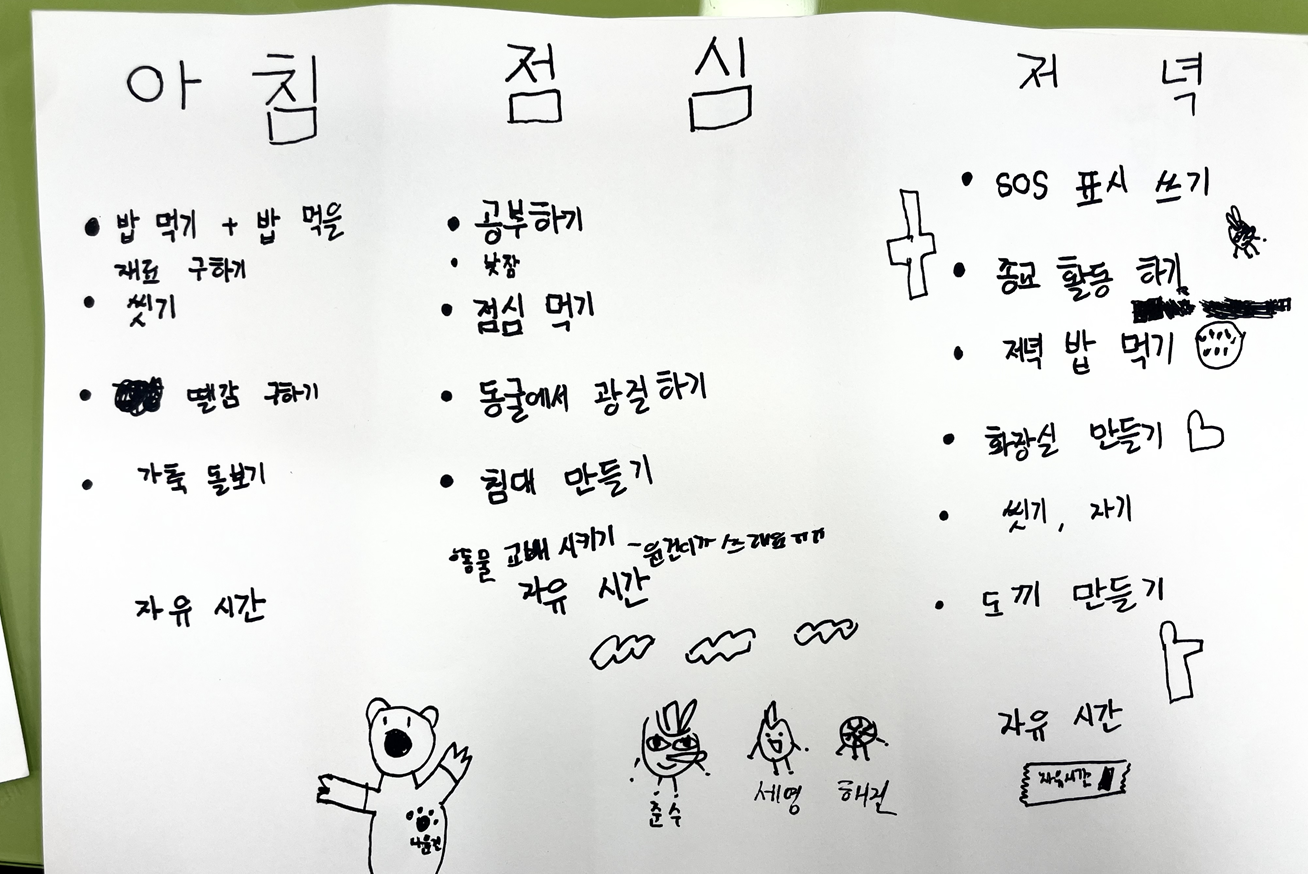 아침
밥 먹기 + 밥 먹을
재료 구하기
씻기
땔감 구하기
가축 돌보기
자유 시간
점심
공부하기
낮잠
점심 먹기
동굴에서 광질하기
침대 만들기
동물 교배 시키기
자유 시간
저녁
SOS 표시 쓰기
종교 활동 하기
저녁 밥 먹기
화장실 만들기
씻기, 자기
도끼 만들기
자유 시간
자유시간
준수
세영
해진